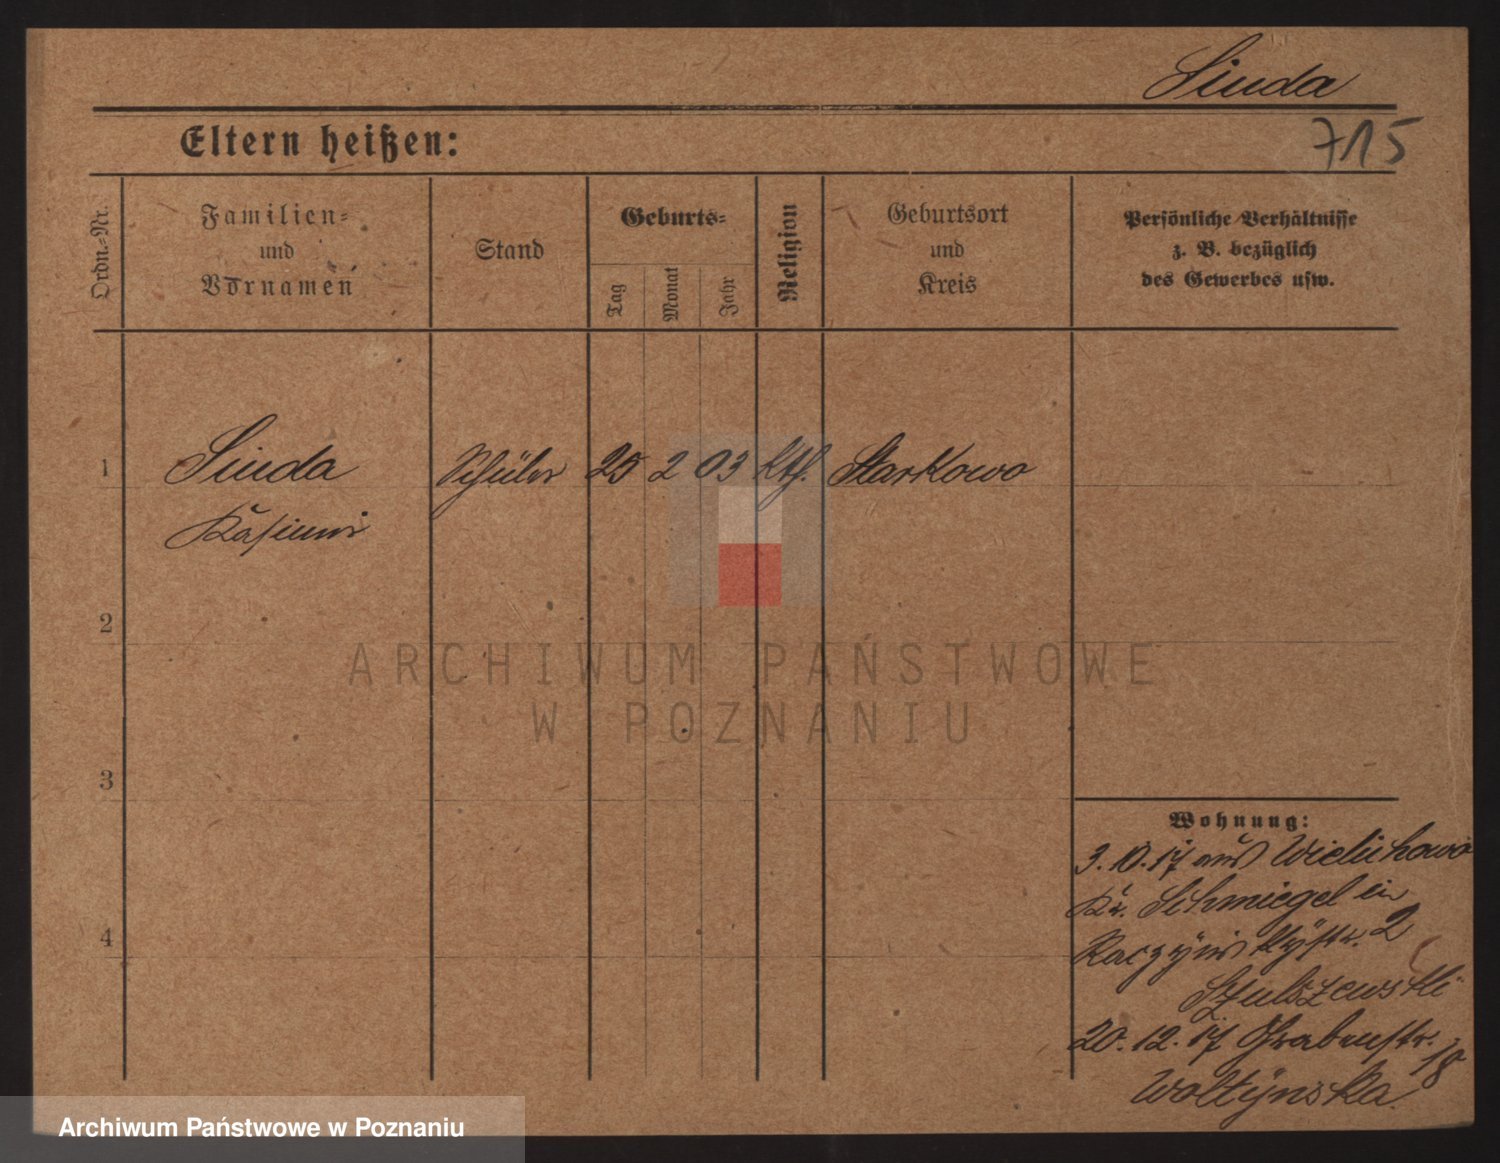 Siuda
Eltern heißen:
715
Ordn.-Nr.
Familien-
und
Vornamen
Stand
Geburts-
Tag
Monat
Jahr
Religion
Geburtsort
und
Kreis
Persönliche Verhältnisse
z. B. bezüglich
des Gewerbes usw.
1
Siuda Schüler 25 2 03 kth. Starkowo
Kasimir
2
ARCHIWUM PAŃSTWOWE
W POZNANIU
3
Wohnung:
3.10.17 aus Wielichowo
Kr. Schmiegel in
4
Raczyńskystr. 2
Szulszewski
20.12.17 Grabenstr. 18
Woltynska.
Archiwum Państwowe w Poznaniu